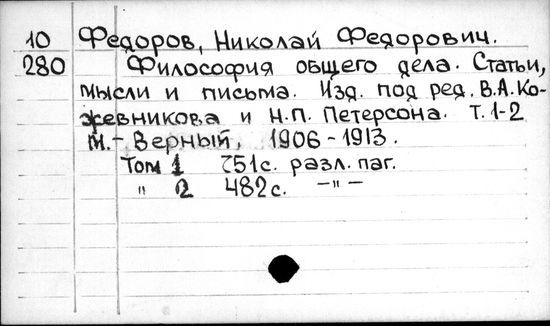 10 Федоров, Николай Федорович.
280 Философия общего дела. Статьи,
мысли и письма. Изд. под ред. В.А.Ко-
жевникова и Н.П. Петерсона. Т.1-2
М.-Верный, 1906-1913.
Том 1 751с. разл. паг.
" 2 482с. -"-